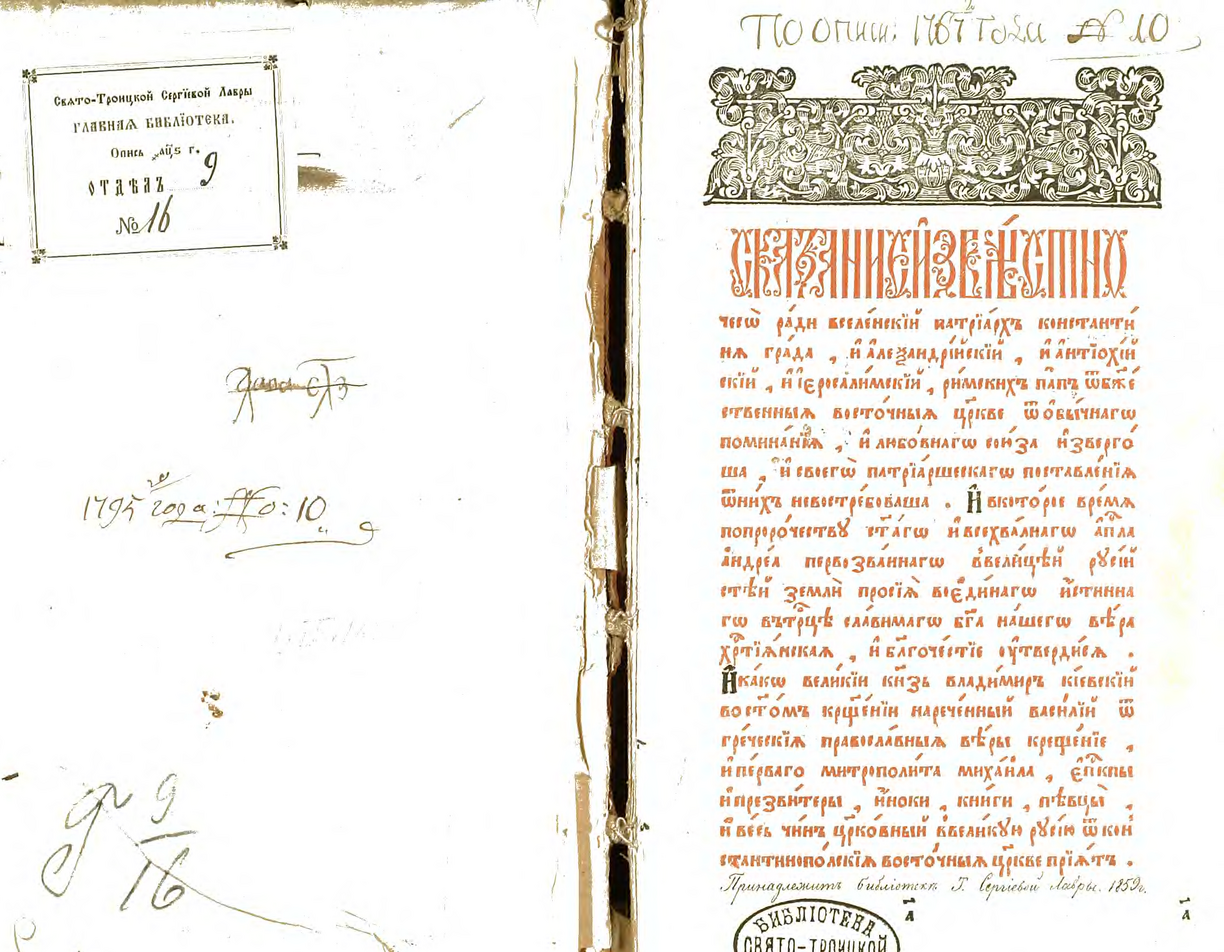 Свято-Троицкой Сергїевой Лавры
ГЛАВНАЯ БИБЛЇОТЕКА.
Опись г.
ОТДѢЛЪ 9
№ 16
1795 го года: No: 10
9
16
По описи: 1767 года № 10
СКАЗАНИЕ И҆ЗВѢ́СТНО
чесѡ̀ ра́ди вселе́нскїй патрїа́рхъ константи́
нѧ гра́да , и҆ а҆леѯандрі́йскїй , и҆ а҆нтїохі́й
скїй , и҆ і҆еросали́мскїй , ри́мскихъ па́пъ ѿ бж҃е́
ственныѧ восто́чныѧ цр҃кве ѿ ѻ҆бы́чнагѡ
помина́нїѧ , и҆ любо́внагѡ сою́за и҆зверго́
ша , и҆ своегѡ̀ патрїа́ршескагѡ поставле́нїѧ
ѿ ни́хъ невостре́боваша . И҆ вкото́рое вре́мѧ
попроро́честву ст҃а́гѡ и҆ всехва́лнагѡ а҆пⷭ҇ла
а҆ндре́а первозва́ннагѡ ввели́цѣй рꙋсі́й
стѣй землѝ просїѧ̀ вое҆ди́нагѡ и҆́стинна
гѡ въ трⷪ҇цѣ сла́вимагѡ бг҃а на́шегѡ вѣ́ра
хрⷭ҇тїа́нскаѧ , и҆ бл҃гоче́стїе ᲂу҆тверди́сѧ .
И҆ ка́кѡ вели́кїй кн҃зь влади́миръ кі́евскїй
во ст҃о́мъ крⷳ҇е́нїи нарече́нный васи́лїй ѿ
гре́ческїѧ правосла́вныѧ вѣ́ры креще́нїе ,
и҆ пе́рваго митрополи́та михаи́ла , є҆пⷭ҇копы
и҆ презви́теры , и҆́ноки , кни́ги , пѣвцы̀ ,
и҆ ве́сь чи́нъ цр҃ко́вный ввели́кую рꙋсі́ю ѿ кон
стантинопо́лскїѧ восто́чныѧ цр҃кве прїѧ́тъ .
Принадлежитъ библіотекѣ Т. Сергіевой Лавры. 1859 г.
а҃
а҃
БИБЛІОТЕКА
СВЯТО-ТРОИЦКОЙ